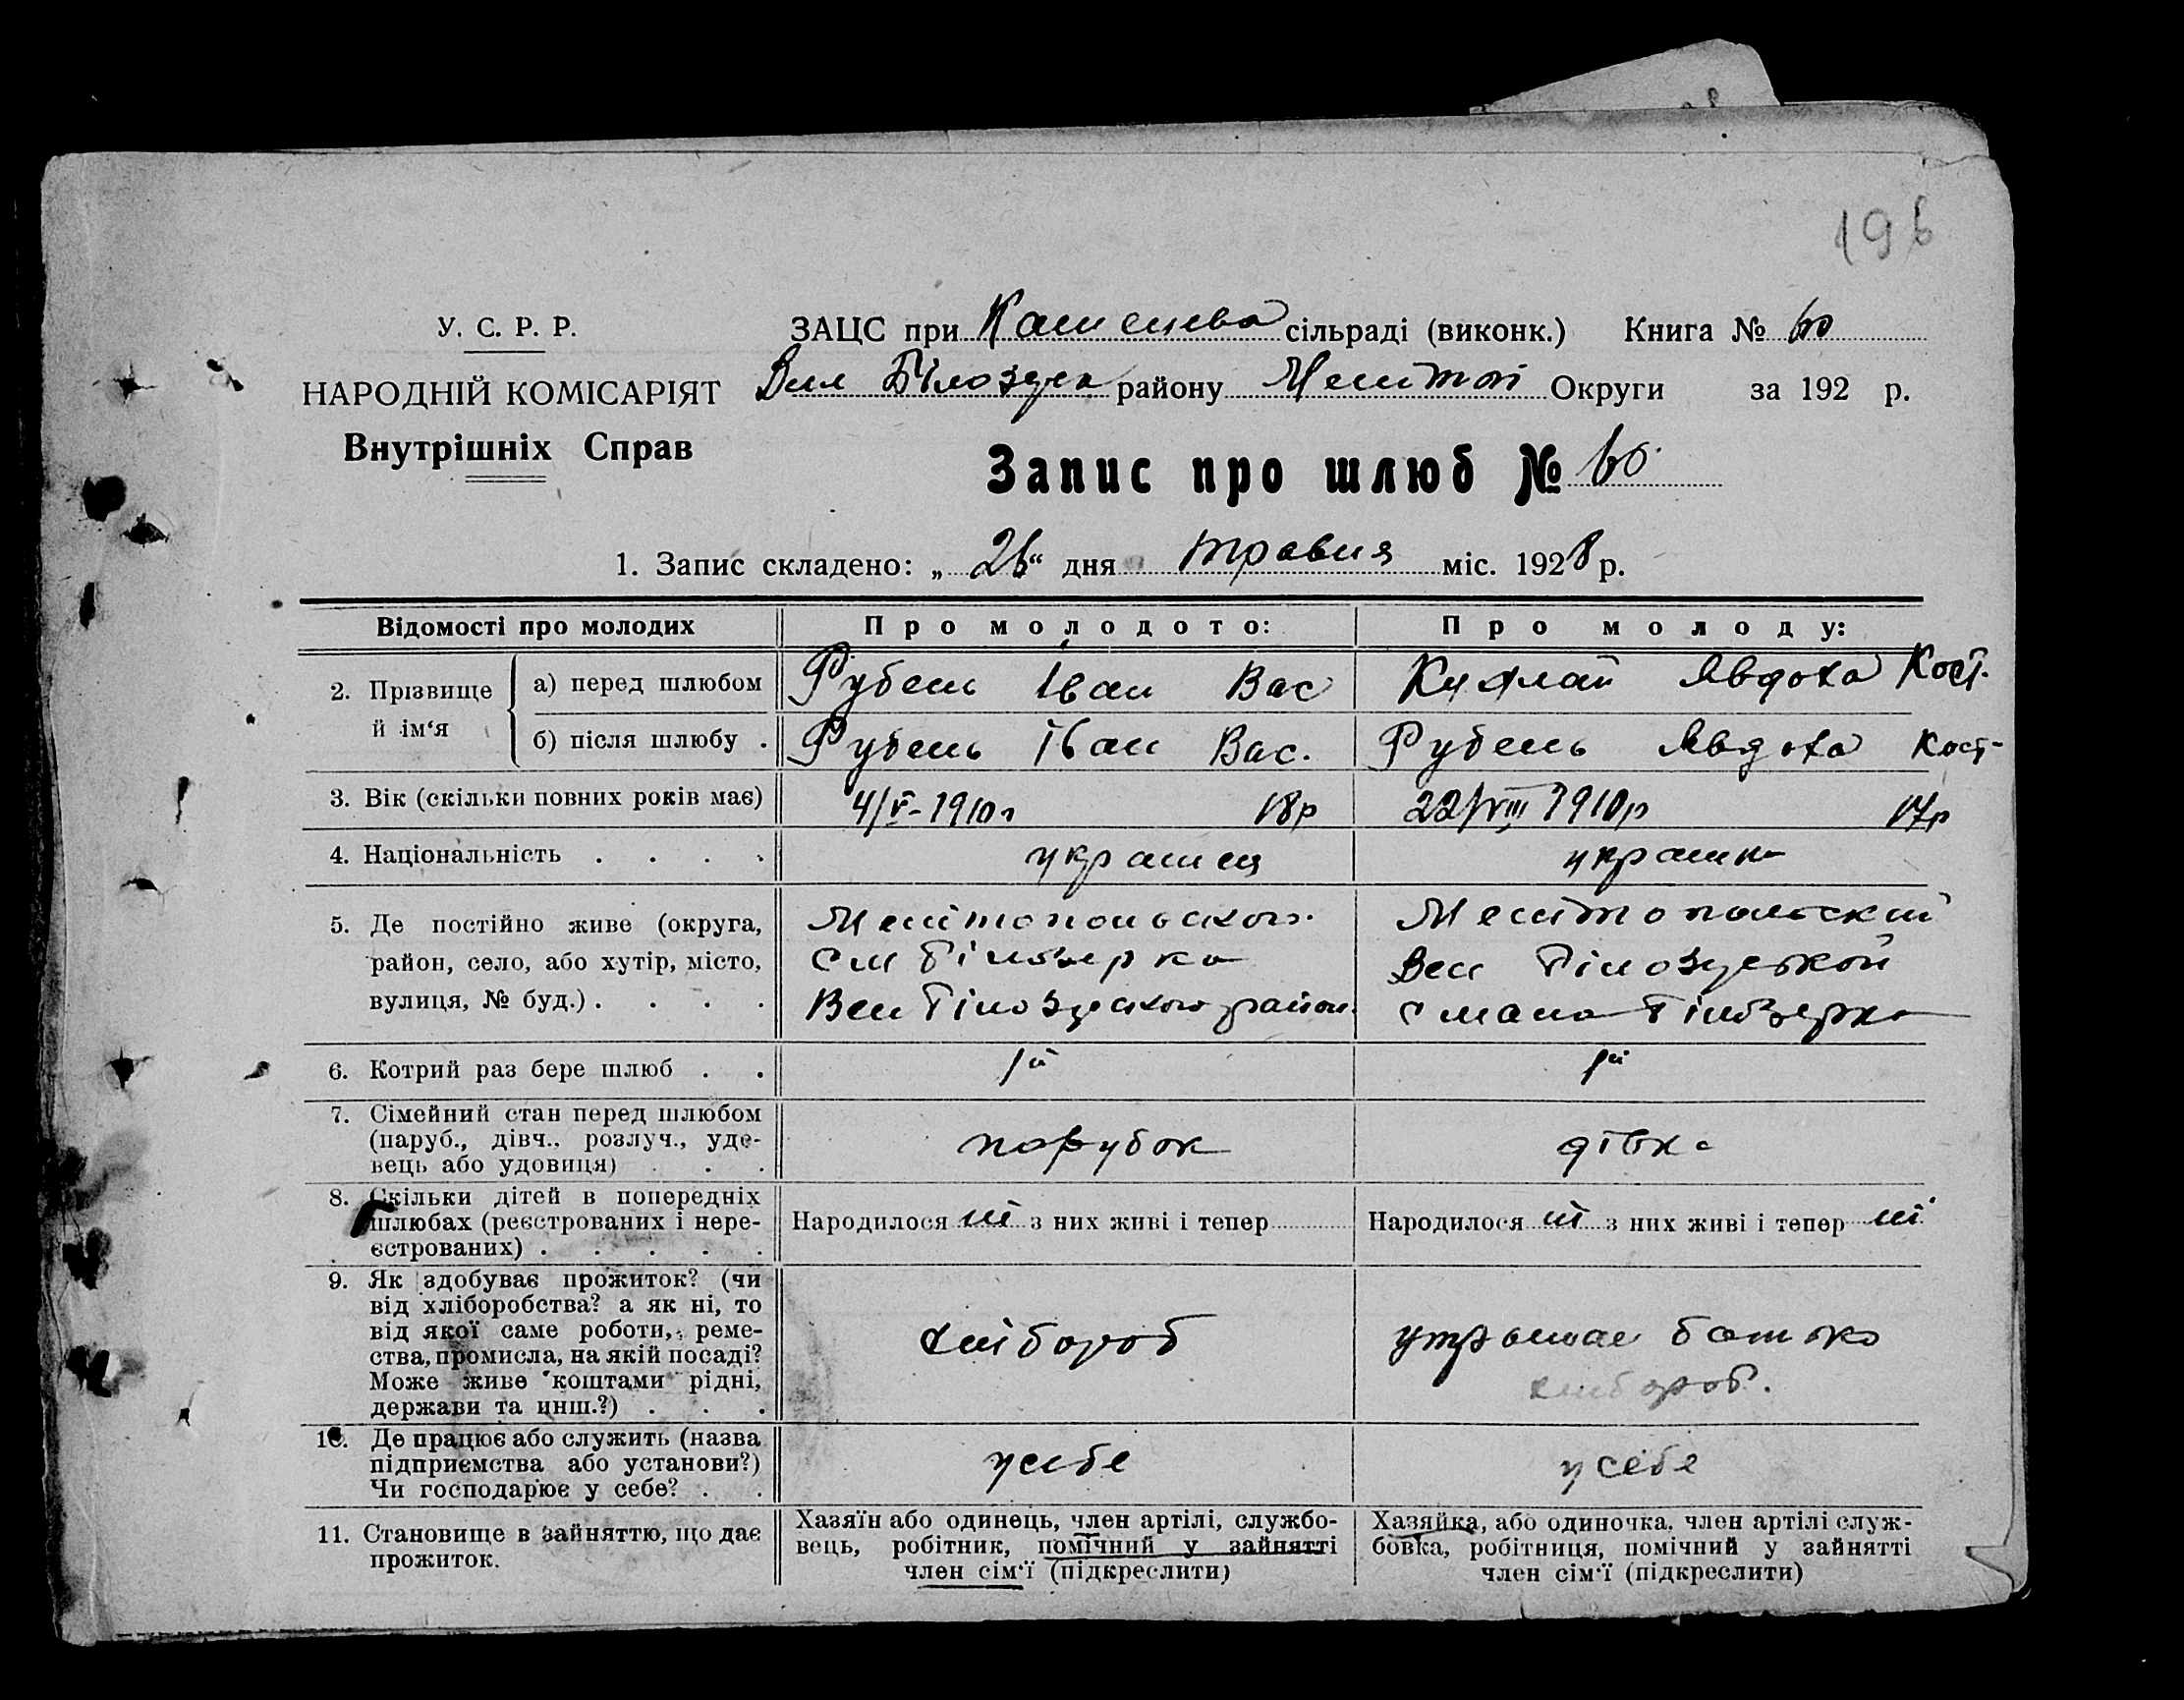 196
У. С. Р. Р.
НАРОДНІЙ КОМІСАРІЯТ
Внутрішніх Справ
ЗАЦС при сільраді (виконк.) Книга № 60
Вел Білозерк району Меліто Округи за 192 р.
Запис про шлюб № 60
1. Запис складено: „ 26 “ дня травня міс. 1928 р.
Відомості про молодих Про молодого: Про молоду:
2. Прізвище й ім‘я
а) перед шлюбом Рубель Іван Вас Явдоха Кост.
б) після шлюбу . Рубель Іван Вас. Рубель Явдоха Кост-
3. Вік (скільки повних років має) 4/V-1910р 18р 22/VIII 1910р 17р
4. Національність . . . . українец українка
5. Де постійно живе (округа,
район, село, або хутір, місто,
вулиця, № буд.) . . . .
Мелітопольского
см Білозерка
Вел Білозерского район.
Мелітопольский
Вел Білозерской
с мала Білозерка
6. Котрий раз бере шлюб . . 1й 1й
7. Сімейний стан перед шлюбом
(паруб., дівч., розлуч., уде-
вець або удовиця) . . .
парубок дівка
8. Скільки дітей в попередніх
шлюбах (реєстрованих і нере-
єстрованих) . . . . .
Народилося ні з них живі і тепер
Народилося ні з них живі і тепер ні
9. Як здобуває прожиток? (чи
від хліборобства? а як ні, то
від якої саме роботи, реме-
ства, промисла, на якій посаді?
Може живе коштами рідні,
держави та инш.?) . . .
хлібороб
батько
хлібороб.
10. Де працює або служить (назва
підприємства або установи?)
Чи господарює у себе? . .
у себе у себе
11. Становище в зайняттю, що дає
прожиток.
Хазяїн або одинець, член артілі, службо-
вець, робітник, помічний у зайнятті
член сім‘ї (підкреслити)
Хазяйка, або одиночка, член артілі служ-
бовка, робітниця, помічний у зайнятті
член сім‘ї (підкреслити)